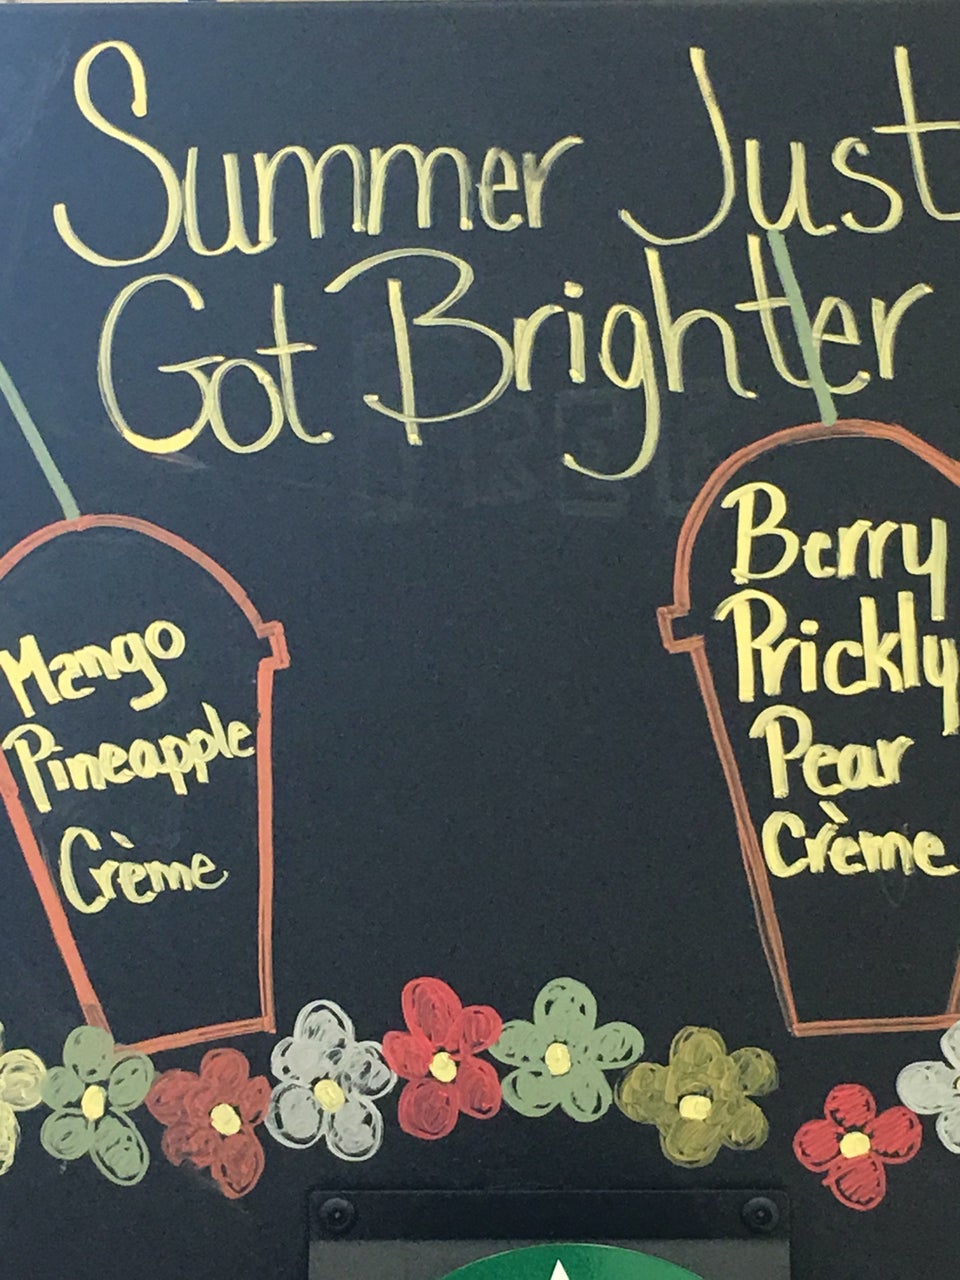 Summer Just
Got Brighter
Mango
Pineapple
Crème
Berry
Prickly
Pear
Crème